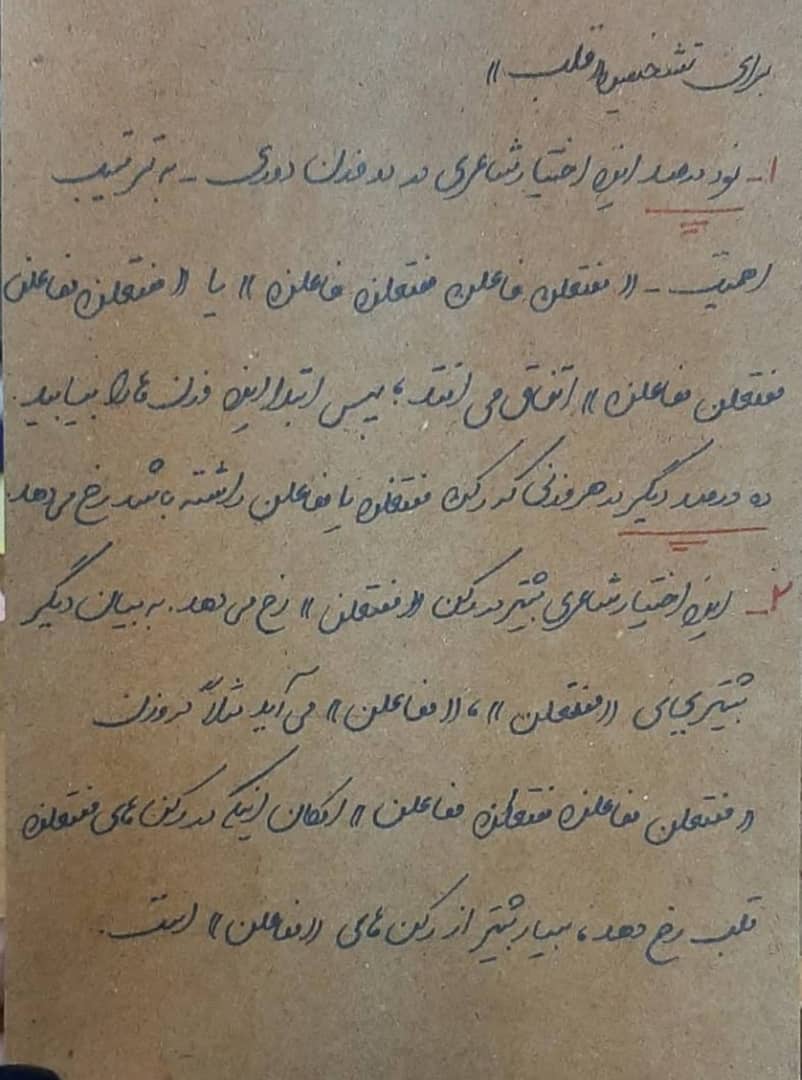 برای تشخیص «قلب»
۱- نود درصد این اختیار شاعری در دو وزن دوری - به ترتیب
اهمیت - «مفتعلن فاعلن مفتعلن فاعلن» یا «مفتعلن مفاعلن
مفتعلن مفاعلن» اتفاق می افتد؛ پس ابتدا این وزن ها را بیابید.
ده درصد دیگر در هر وزنی که رکن مفتعلن یا مفاعلن داشته باشد رخ می دهد.
۲- این اختیار شاعری بیشتر در رکن «مفتعلن» رخ می دهد. به بیان دیگر
بیشتر بجای «مفتعلن»، «مفاعلن» می آید مثلاً در وزن
«مفتعلن مفاعلن مفتعلن مفاعلن» امکان اینکه در رکن های مفتعلن
قلب رخ دهد، بسیار بیشتر از رکن های «مفاعلن» است.